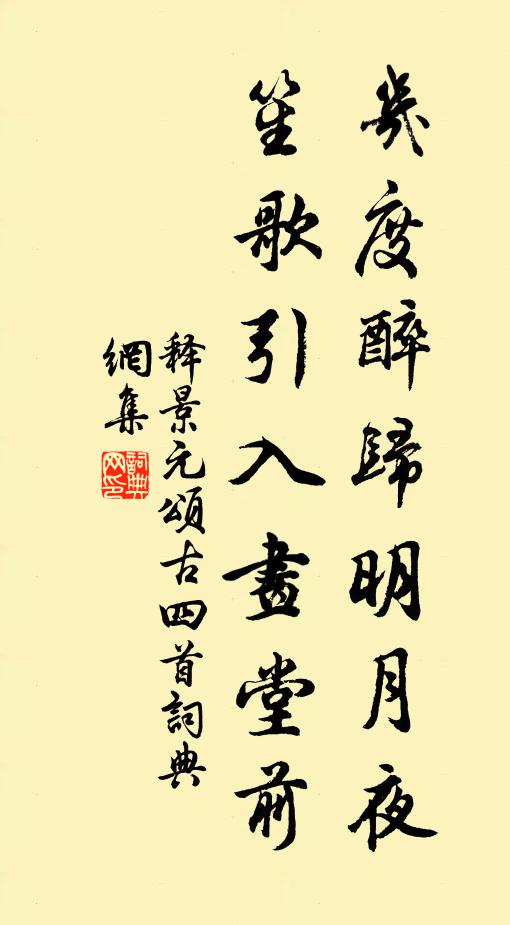 幾度醉歸明月夜
笙歌引入畫堂前
释景元頌古四首詞典
網集
詞典網印